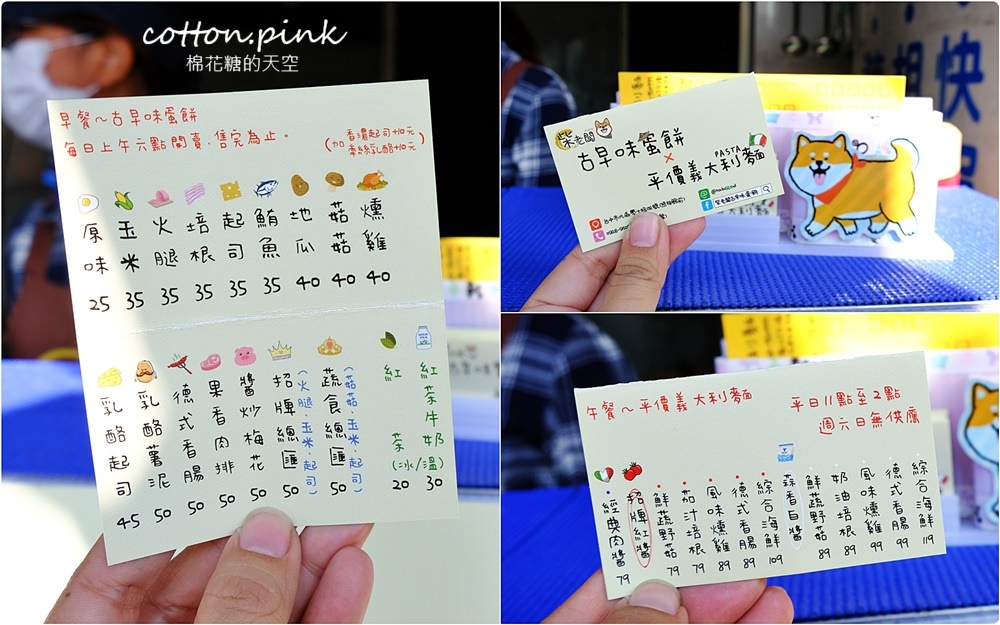 cotton.pink
棉花糖的天空
早餐～古早味蛋餅
每日上午六點開賣．售完為止。
(香濃起司+10元
加牽絲乳酪+10元)
原味 25
玉米 35
火腿 35
培根 35
起司 35
鮪魚 35
地瓜 40
菇菇 40
燻雞 40
乳酪起司 45
乳酪薯泥 50
德式香腸 50
果香肉排 50
醬炒梅花 50
招牌總匯(火腿．玉米．起司) 50
蔬食總匯(菇菇．玉米．起司) 50
紅茶 20
紅茶牛奶 30
(冰/溫)
柴老闆
古早味蛋餅
×
PASTA
平價義大利麵
快
想
午餐～平價義大利麵
平日11點至2點
週六日無供應
經典肉醬 79
招牌紅醬
鮮蔬野菇 79
茄汁培根 79
風味燻雞 89
德式香腸 89
綜合海鮮 109
蒜香白醬
鮮蔬野菇 89
奶油培根 89
風味燻雞 99
德式香腸 99
綜合海鮮 119